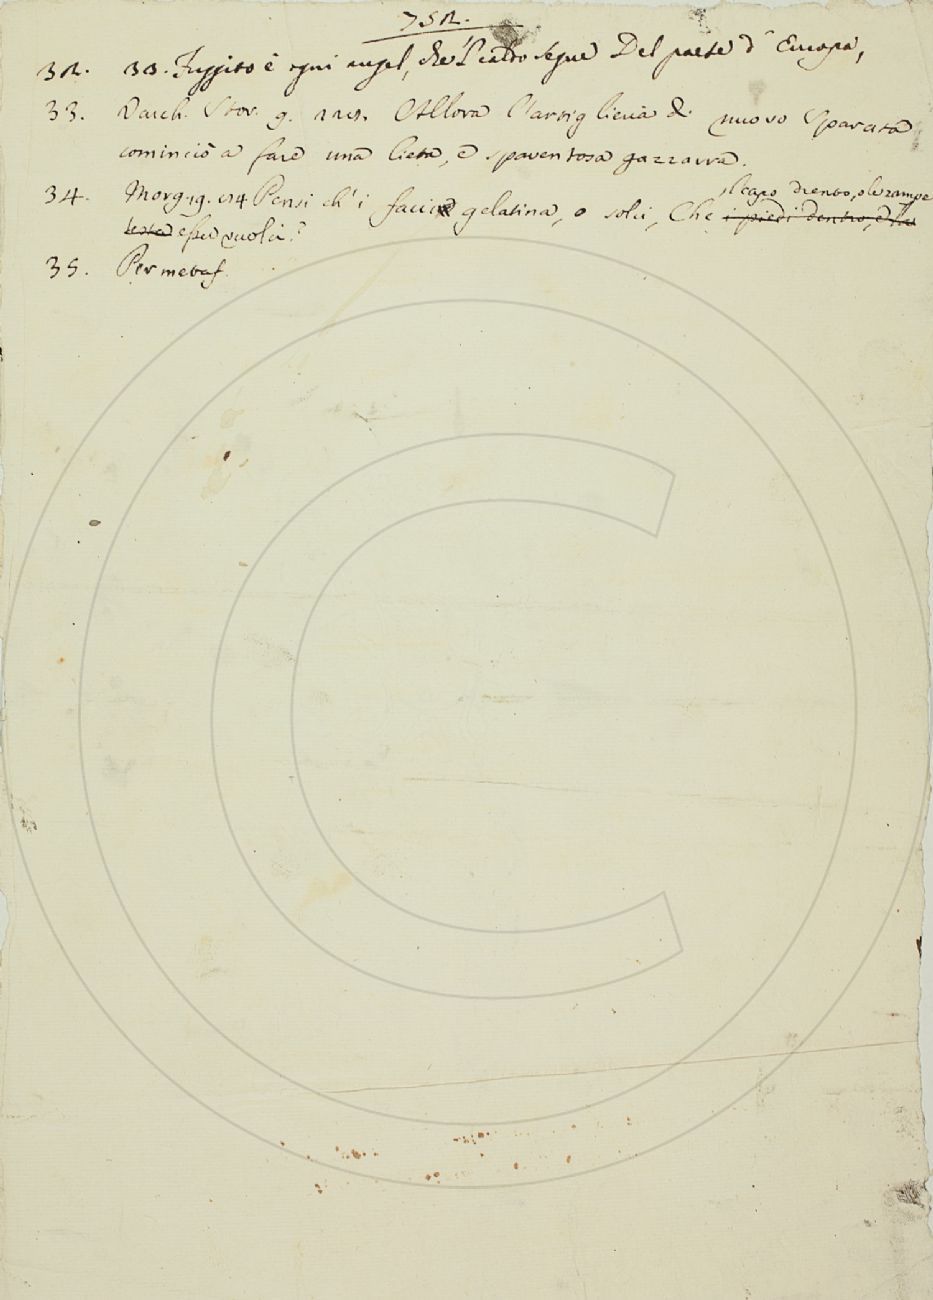 752.
32. 33. Fuggito è ogni augel, che 'l caldo segue Del paese d' Europa,
33. Varch. Stor. 9. Allora l' artiglieria di nuovo sparata
cominciò a fare una lieta, e spaventosa gazzarra.
34. Morg. 19. Pensi ch' i' faccia gelatina, o solci, Che i piedi dentro, e la
il capo drento, o le zampe
testa e peu vuolci?
35. Per metaf.